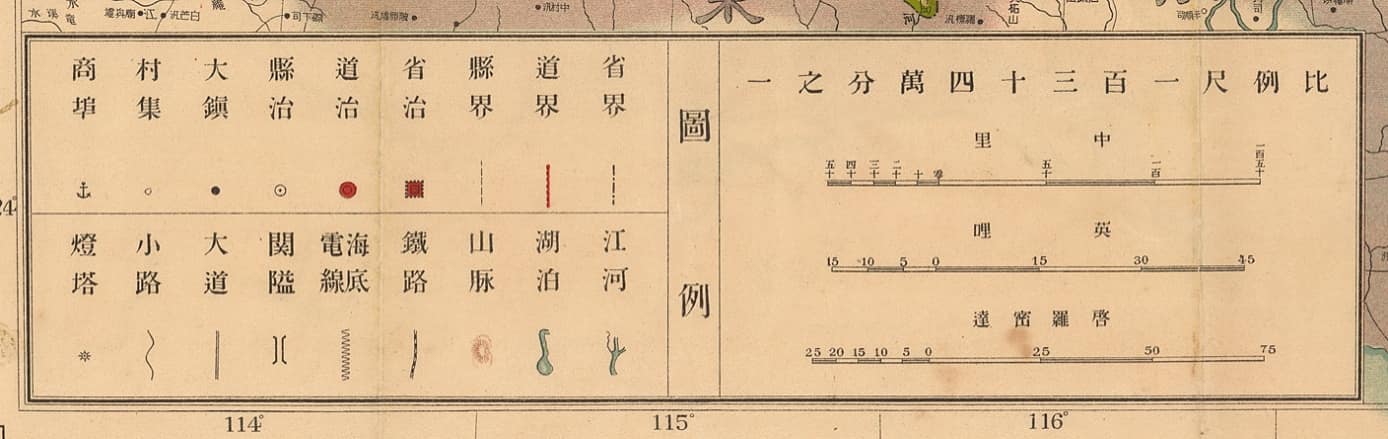 比例尺一百三十四萬分之一
中里
五十 四十 三十 二十 十 零 五十 一百 一百五十
英哩
15 10 5 0 15 30 45
啓羅密達
25 20 15 10 5 0 25 50 75
圖例
省界
道界
縣界
省治
道治
縣治
大鎭
村集
商埠
江河
湖泊
山脉
鐵路
海底電線
関隘
大道
小路
燈塔
24°
114°
115°
116°